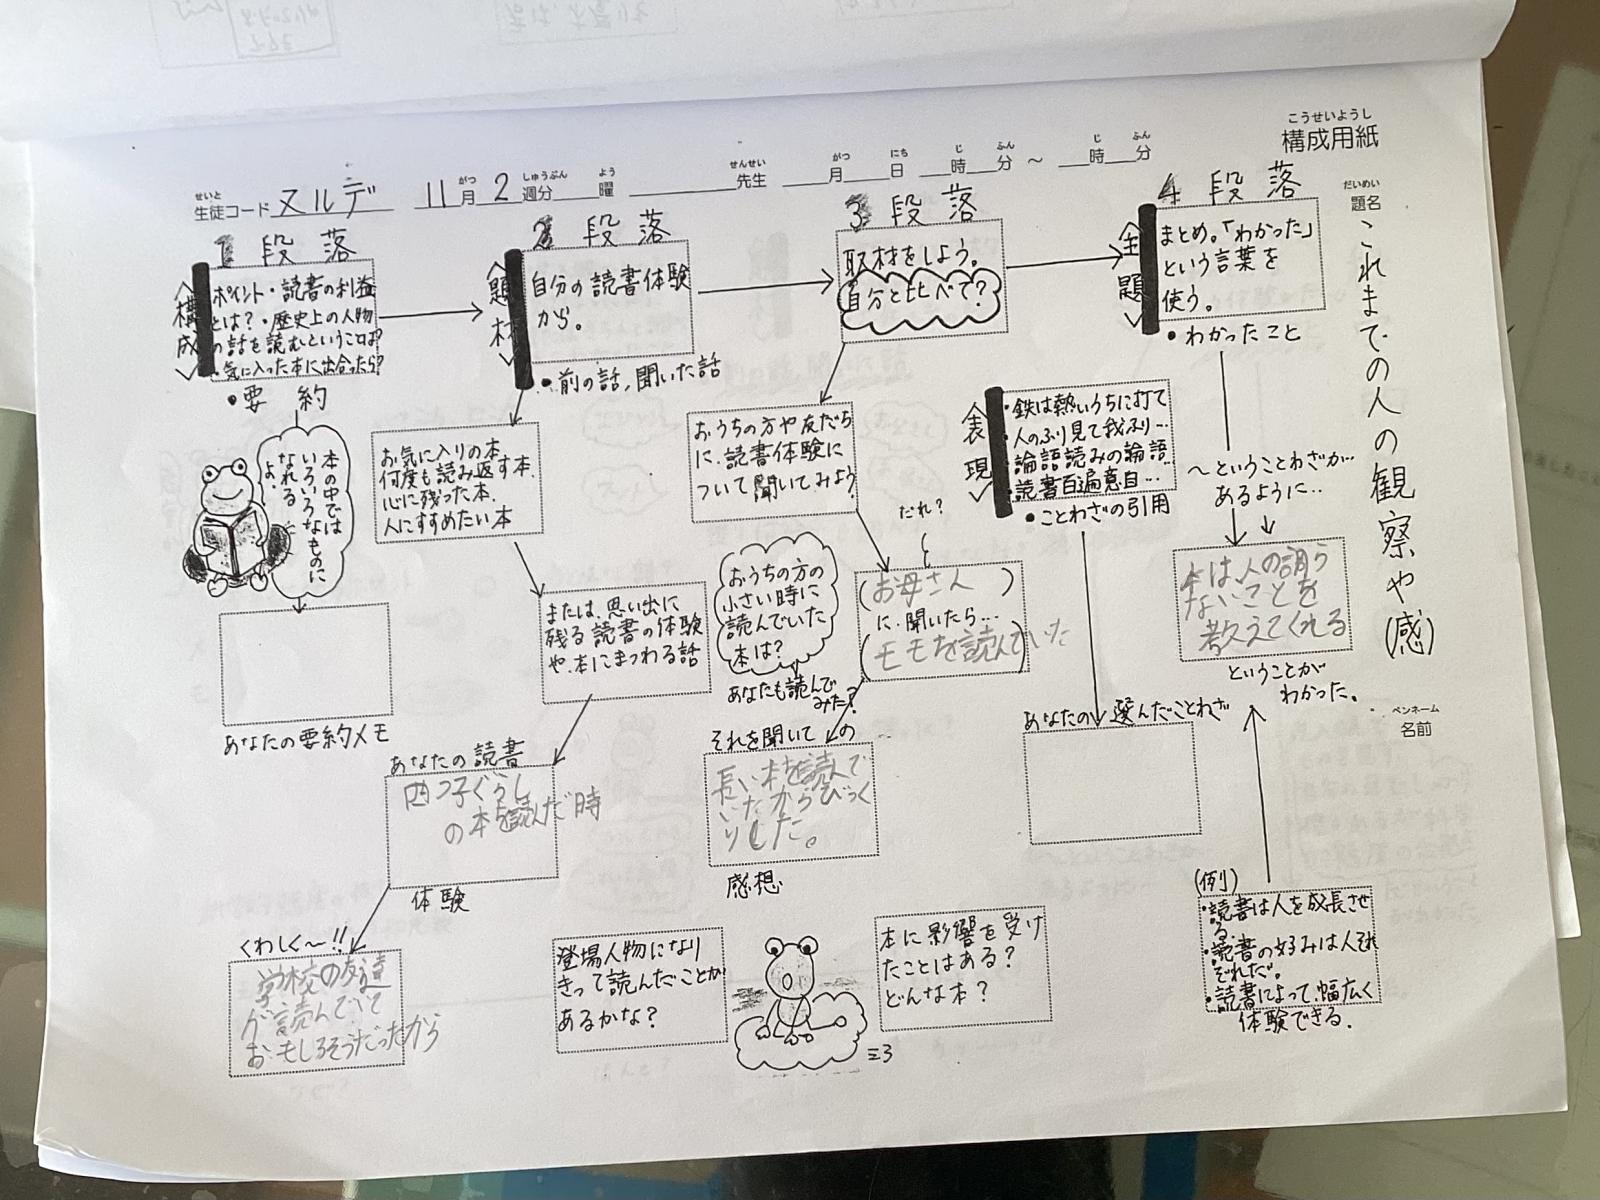 こうせいようし
構成用紙
せいと
生徒コード ヌルデ 11月 2週分 曜 先生 月 日 時 分 ～ 時 分
がつ しゅうぶん よう せんせい がつ にち じ ふん じ ふん
だいめい
題名
これまでの人の観察や(感)
ペンネーム
名前
1段落
<構成>
ポイント・読書の利益
とは?・歴史上の人物
の話を読むということは?
・気に入った本に出合ったら?
•要約
本の中では
いろいろなものに
なれる
よ。
あなたの要約メモ
2段落
<題材>
自分の読書体験
から。
•前の話,聞いた話
お気に入りの本、
何度も読み返す本、
心に残った本、
人にすすめたい本
または、思い出に
残る読書の体験
や、本にまつわる話
あなたの読書
四つ子ぐらし
の本を読んだ時
体験
くわしく～!!
学校の友達
が読んでいて
おもしろそうだったから
3段落
取材をしよう。
自分と比べて?
おうちの方や友だち
に、読書体験に
ついて聞いてみよう
だれ?
(お母さん)
に、聞いたら…
(モモを読んでいた
おうちの方の
小さい時に
読んでいた
本は?
あなたも読んで
みた?
それを聞いての
長い本を読んで
いたからびっく
りした。
感想
登場人物になり
きって読んだことが
あるかな?
本に影響を受け
たことはある?
どんな本?
4段落
<主題>
まとめ。「わかった」
という言葉を
使う。
•わかったこと
<表現>
・鉄は熱いうちに打て
・人のふり見て我ふり…
・論語読みの論語…
・読書百遍意自…
•ことわざの引用
あなたの選んだことわざ
～ということわざが…
あるように…
本は人の言うう
ないことを
教えてくれる
ということが
わかった。
(例)
・読書は人を成長させ
る。
・読書の好みは人それ
ぞれだ。
・読書によって、幅広く
体験できる。